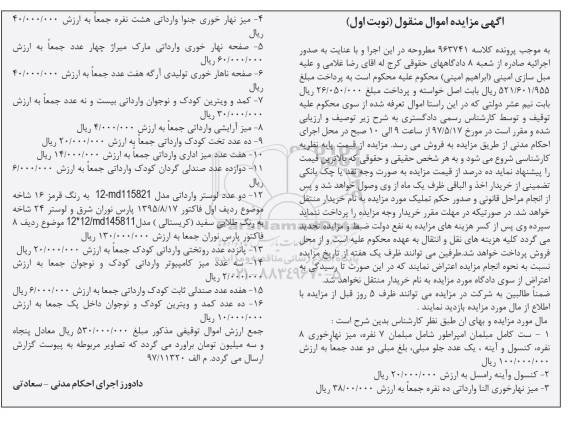 آگهی مزایده اموال منقول (نوبت اول)
به موجب پرونده کلاسه ۹۶۳۷۴۱ مطروحه در این اجرا و با عنایت به صدور
اجرائیه صادره از شعبه ۸ دادگاههای حقوقی کرج له اقای رضا غلامی و علیه
مبل سازی امینی (ابراهیم امینی) محکوم علیه محکوم است به پرداخت مبلغ
۵۲۱/۶۰۱/۹۵۵ ریال بابت اصل خواسته و پرداخت مبلغ ۲۶/۰۵۰/۰۰۰ ریال
بابت نیم عشر دولتی که در این راستا اموال تعرفه شده از سوی محکوم علیه
توقیف و توسط کارشناس رسمی دادگستری به شرح زیر توصیف و ارزیابی
شده و مقرر است در مورخ ۹۷/۵/۱۷ از ساعت ۹ الی ۱۰ صبح در محل اجرای
احکام مدنی از طریق مزایده به فروش می رسد. مزایده از قیمت پایه نظریه
کارشناسی شروع می شود و به هر شخص حقیقی و حقوقی که بالاترین قیمت
را پیشنهاد نماید ده درصد از قیمت مزایده به صورت وجه نقد یا چک بانکی
تضمینی از خریدار اخذ و الباقی ظرف یک ماه از وی وصول خواهد شد و پس
از انجام مراحل قانونی و صدور حکم تملیک مورد مزایده به نام خریدار منتقل
خواهد شد. در صورتیکه در مهلت مقرر خریدار وجه مزایده را پرداخت ننماید
سپرده وی پس از کسر هزینه های مزایده به نفع دولت ضبط و مزایده تجدید
می گردد کلیه هزینه های نقل و انتقال به عهده محکوم علیه است و از محل
فروش پرداخت خواهد شد.طرفین می توانند ظرف یک هفته از تاریخ مزایده
نسبت به نحوه انجام مزایده اعتراض نمایند که در این صورت تا رسیدگی به
اعتراض از سوی دادگاه مورد مزایده به نام خریدار منتقل نخواهد شد.
ضمنا طالبین به شرکت در مزایده می توانند ظرف ۵ روز قبل از مزایده با
اطلاع از مال مورد مزایده بازدید نمایند .
مال مورد مزایده و بهای ان طبق نظر کارشناسی بدین شرح است :
۱ – ست کامل مبلمان امپراطور شامل مبلمان ۷ نفره، میز نهارخوری ۸
نفره، کنسول و آینه ، یک عدد جلو مبلی، بغل مبلی دو عدد جمعاً به ارزش
۱۰۰/۰۰۰/۰۰۰ ریال
۲- کنسول وآینه رامسل به ارزش ۲۰/۰۰۰/۰۰۰ ریال
۳- میز نهارخوری النا وارداتی ده نفره جمعاً به ارزش ۳۸/۰۰/۰۰۰ ریال
۴- میز نهار خوری جنوا وارداتی هشت نفره جمعاً به ارزش ۴۰/۰۰۰/۰۰۰
ریال
۵- صفحه نهار خوری وارداتی مارک میراژ چهار عدد جمعاً به ارزش
۶۰/۰۰۰/۰۰۰ ریال
۶- صفحه ناهار خوری تولیدی آرگه هفت عدد جمعاً به ارزش ۴۰/۰۰۰/۰۰۰
ریال
۷- کمد و ویترین کودک و نوجوان وارداتی بیست و نه عدد جمعاً به ارزش
۳۰/۰۰۰/۰۰۰ ریال
۸- میز آرایشی وارداتی جمعاً به ارزش ۴/۰۰۰/۰۰۰ ریال
۹- ده عدد تخت کودک وارداتی جمعاً به ارزش ۲۰/۰۰۰/۰۰۰ ریال
۱۰- هفت عدد میز اداری وارداتی جمعاً به ارزش ۱۴/۰۰۰/۰۰۰ ریال
۱۱- دوازده عدد صندلی گردان کودک وارداتی جمعاً به ارزش ۶/۰۰۰/۰۰۰
ریال
۱۲- دو عدد لوستر وارداتی مدل 12-md115821 به رنگ قرمز ۱۶ شاخه
موضوع ردیف اول فاکتور ۱۳۹۵/۸/۱۷ پارس نوران شرق و لوستر ۲۴ شاخه
به رنگ طلائی سفید (کریستالی ) مدل 12*12/md145811 موضوع ردیف ۸
فاکتور پارس نوران جمعا به ارزش ۱۳۰/۰۰۰/۰۰۰ ریال
۱۳- پانزده عدد روتختی وارداتی کودک جمعاً به ارزش ۲۰/۰۰۰/۰۰۰ ریال
۱۴- سه عدد میز کامپیوتر وارداتی کودک و نوجوان جمعا به ارزش
۲/۰۰۰/۰۰۰ ریال
۱۵- هفده عدد صندلی ثابت کودک وارداتی جمعا به ارزش ۶/۰۰۰/۰۰۰ ریال
۱۶- ده عدد کمد و ویترین کودک و نوجوان داخل پک جمعا به ارزش
۱۰/۰۰۰/۰۰۰ ریال
جمع ارزش اموال توقیفی مذکور مبلغ ۵۳۰/۰۰۰/۰۰۰ ریال معادل پنجاه
و سه میلیون تومان براورد می گردد که تصاویر مربوطه به پیوست گزارش
ارسال می گردد. م الف ۹۷/۱۱۳۲۰
دادورز اجرای احکام مدنی – سعادتی